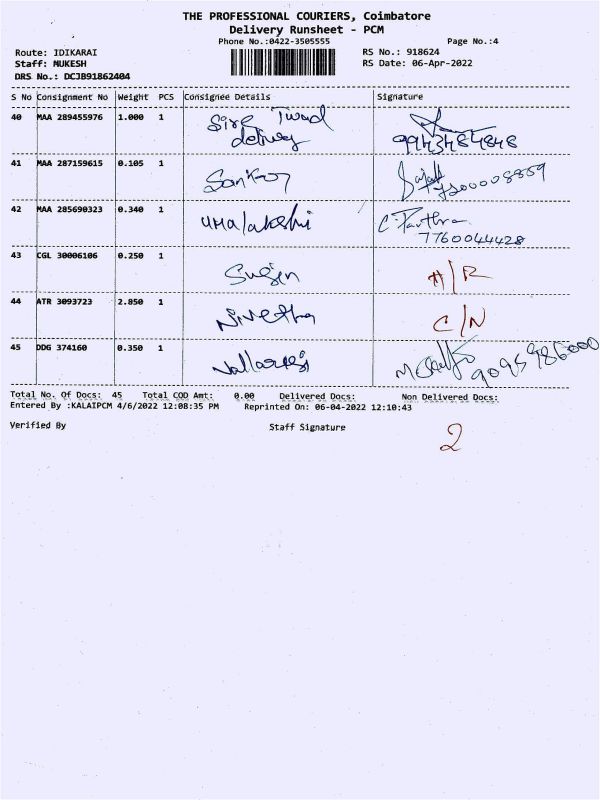 THE PROFESSIONAL COURIERS, Coimbatore
Delivery Runsheet - PCM
Phone No.:0422-3505555 Page No.:4
Route: IDIKARAI RS No.: 918624
Staff: MUKESH RS Date: 06-Apr-2022
DRS No.: DCJB91862404
S No Consignment No Weight PCS Consignee Details Signature
40 MAA 289455976 1.000 1
delivery 9943484848
41 MAA 287159615 0.105 1
42 MAA 285690323 0.340 1 UMalakshi
7760044428
43 CGL 30006106 0.250 1 Sujin H/R
44 ATR 3093723 2.850 1 Nivetha C/N
45 DDG 374160 0.350 1 9095986000
Total No. Of Docs: 45 Total COD Amt: 0.00 Delivered Docs: Non Delivered Docs:
Entered By :KALAIPCM 4/6/2022 12:08:35 PM Reprinted On: 06-04-2022 12:10:43
Verified By Staff Signature
2